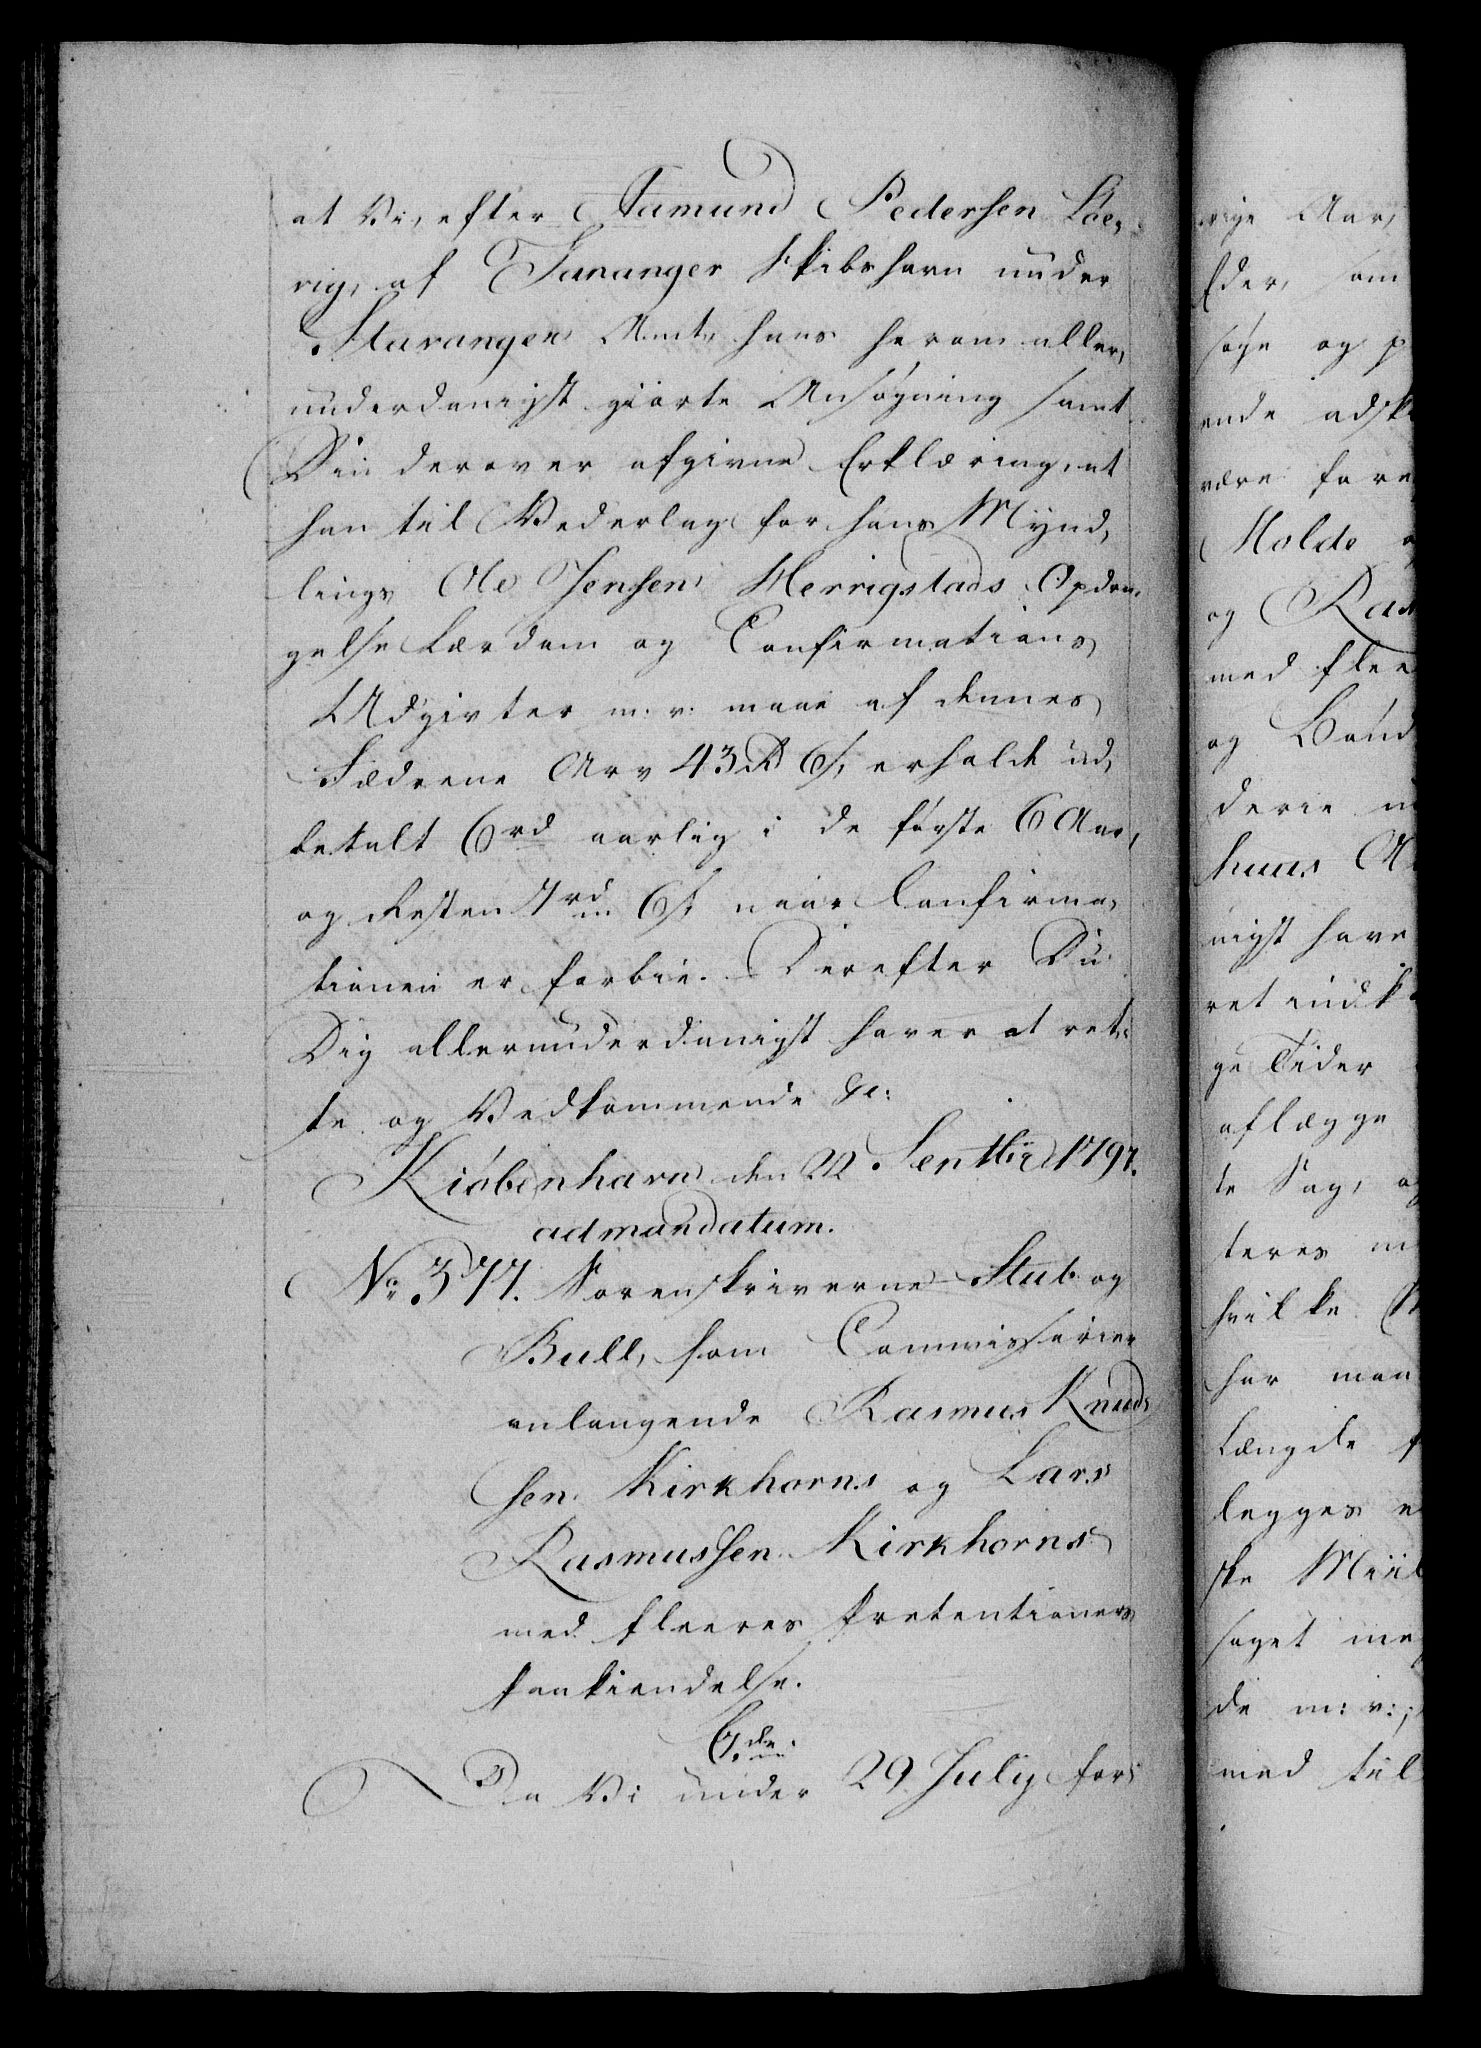 at Vi, efter Aamund Pedersen Löe,
rig, af Tananger Skibshavn under
Stavanger Amt, hans herom aller,
underdanigst giorte Ansøgning samt
Din derover afgivne Erklæring, at
han til Vederlag for hans Mynd,
lings Ole Jensen Herrigstads Opdra,
gelse Lærdom og Confirmations
Udgivter m. v. maae af dennes
Fædrene Arv 43 Rd 6 s, erholde ud,
betalt 6 rd aarlig i de første 6 Aar,
og Resten 7 rd 6 s, naar Confirma,
tionen er forbie. Derefter Du
Dig allerunderdanigst haver at ret,
te og Vedkommende &c:
Kiøbenhavn den 22 Septbr 1797.
ad mandatum.
No. 377. Sorenskriverne Stub og
Bull, som Commissarier
anlangende Rasmus Knud,
sen Kirkhorns og Lars
Rasmussen Kirkhorns
med fleeres Prætentioners
Paakiendelse.
G. de
Da Vi under 29 July for,
rige Aar,
Eder, som
søge og p
ende adsk
være fore
Molde
og Ras
med flee
og Bönd
derie
huus A
nigst have
ret indk
ge Tider
aflægge
te Sag, og
teres
hvilke
har man
Længde
legges
ske Miil
saget
de m: v:
med til